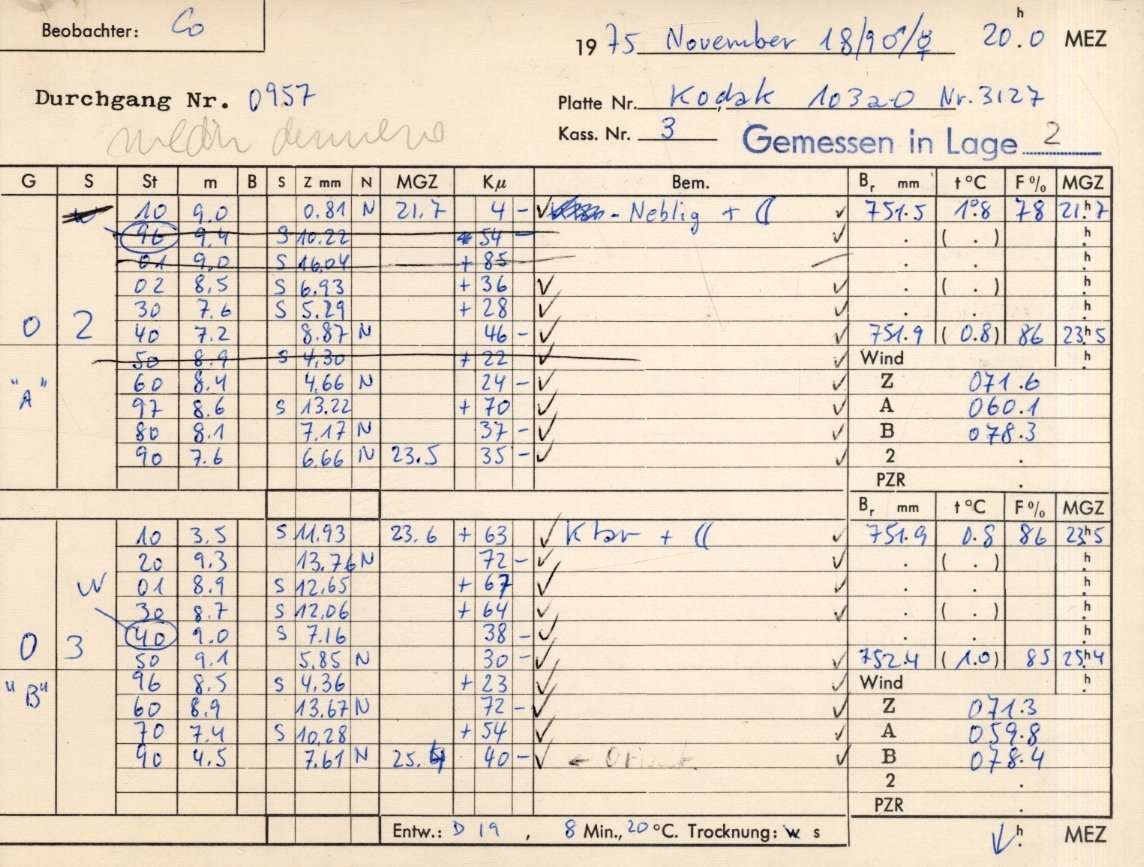 Beobachter: Co
1975 November 18/19 ♂/☿ 20.h0 MEZ
Durchgang Nr. 0957
Platte Nr. Kodak 103a-O Nr. 3127
Kass. Nr. 3 Gemessen in Lage 2
G S St m B S Z mm N MGZ Kμ Bem. Br mm t°C F% MGZ
10 9.0 0.81 N 21.7 4 - ✓ - Neblig + (( ✓ 751.5 1.8 78 21.h7
96 9.4 S 10.22 + 54 ✓ . ( . ) .h
01 9.0 S 16.04 + 85 . . .h
02 8.5 S 6.93 + 36 ✓ ✓ . ( . ) .h
30 7.6 S 5.29 + 28 ✓ ✓ . . .h
0 2 40 7.2 8.87 N 46 - ✓ ✓ 751.9 ( 0.8) 86 23.h5
50 8.9 S 4.30 + 22 ✓ ✓ Wind .h
"A" 60 8.4 4.66 N 24 - ✓ ✓ Z 071.6
97 8.6 S 13.22 + 70 ✓ ✓ A 060.1
80 8.1 7.17 N 37 - ✓ ✓ B 078.3
90 7.6 6.66 N 23.5 35 - ✓ ✓ 2 .
PZR .
Br mm t°C F% MGZ
10 3.5 S 11.93 23.6 + 63 ✓ Klar + (( ✓ 751.9 0.8 86 23.h5
20 9.3 13.76 N 72 - ✓ ✓ . ( . ) .h
W 01 8.9 S 12.65 + 67 ✓ ✓ . . .h
30 8.7 S 12.06 + 64 ✓ ✓ . ( . ) .h
0 3 40 9.0 S 7.16 38 - ✓ . . .h
50 9.1 5.85 N 30 - ✓ ✓ 752.4 ( 1.0) 85 25.h4
"B" 96 8.5 S 4.36 + 23 ✓ ✓ Wind .h
60 8.9 13.67 N 72 - ✓ ✓ Z 071.3
70 7.4 S 10.28 + 54 ✓ ✓ A 059.8
90 4.5 7.61 N 25.4 40 - ✓ ← ✓ B 078.4
2 .
PZR .
Entw.: D 19 , 8 Min., 20 °C. Trocknung: w s .h MEZ